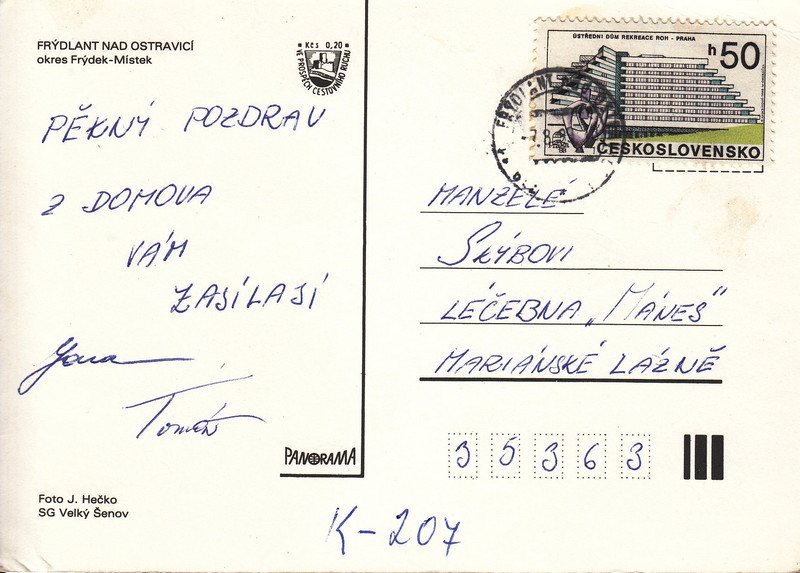 FRÝDLANT NAD OSTRAVICÍ
okres Frýdek-Místek
Kčs 0,20
VE PROSPĚCH CESTOVNÍHO RUCHU
PĚKNÝ POZDRAV
Z DOMOVA
VÁM
ZASÍLAJÍ
Jana
Tomáš
PANORAMA
Foto J. Hečko
SG Velký Šenov
K-207
ÚSTŘEDNÍ DŮM REKREACE ROH - PRAHA
h50
ČESKOSLOVENSKO
MANZELÉ
SKÝBOVI
LÉČEBNA „MÁNES"
MARIÁNSKÉ LÁZNĚ
35363